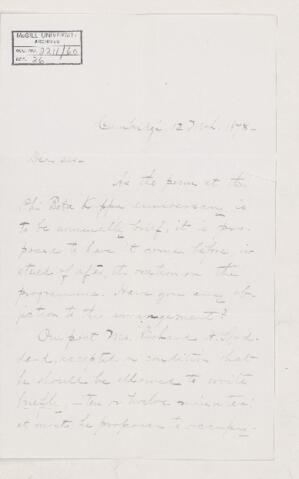 McGILL UNIVERSITY
ARCHIVES
ACC. NO. 2211/60
REF. 26
Cambridge 12 1878-
Dear Sir-
As the poem at the
Phi Beta Kappa anniversary is
to be unusually brief, it is pro-
posed to have it come before in-
stead of after, the oration on the
programme. Have you any ob-
jection to the arrangement?
Our poet Mr. Richard H.
accepted on condition that
he should be allowed to write
briefly,- ten or twelve minutes
at most, he proposes to occupy,-